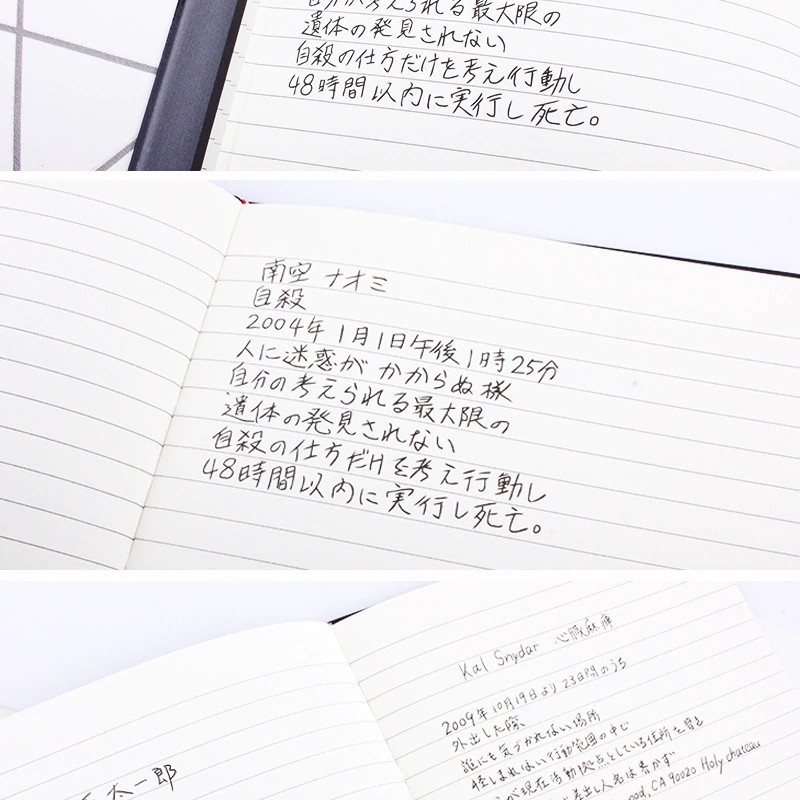 自分が考えられる最大限の
遺体の発見されない
自殺の仕方だけを考え行動し
48時間以内に実行し死亡。
南空 ナオミ
自殺
2004年1月1日午後1時25分
人に迷惑がかからぬ様
自分の考えられる最大限の
遺体の発見されない
自殺の仕方だけを考え行動し
48時間以内に実行し死亡。
太一郎
Kal Snydar 心臓麻痺
2009年10月19日より23日間のうち
外出した際、
誰にも気づかれない場所
怪しまれない行動範囲の中で
が現在活動拠点としている住所を
差出し人名は書かず
CA 90020 Holy chateau